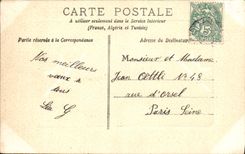 CARTE POSTALE
à utiliser seulement dans le Service Intérieur
(France, Algérie et Tunisie)
Partie réservée à la Correspondance
Adresse du Destinataire
Nos meilleurs
vœux à
tous
Monsieur et Madame
Jean N° 43
rue d'Orsel
Paris Seine
5